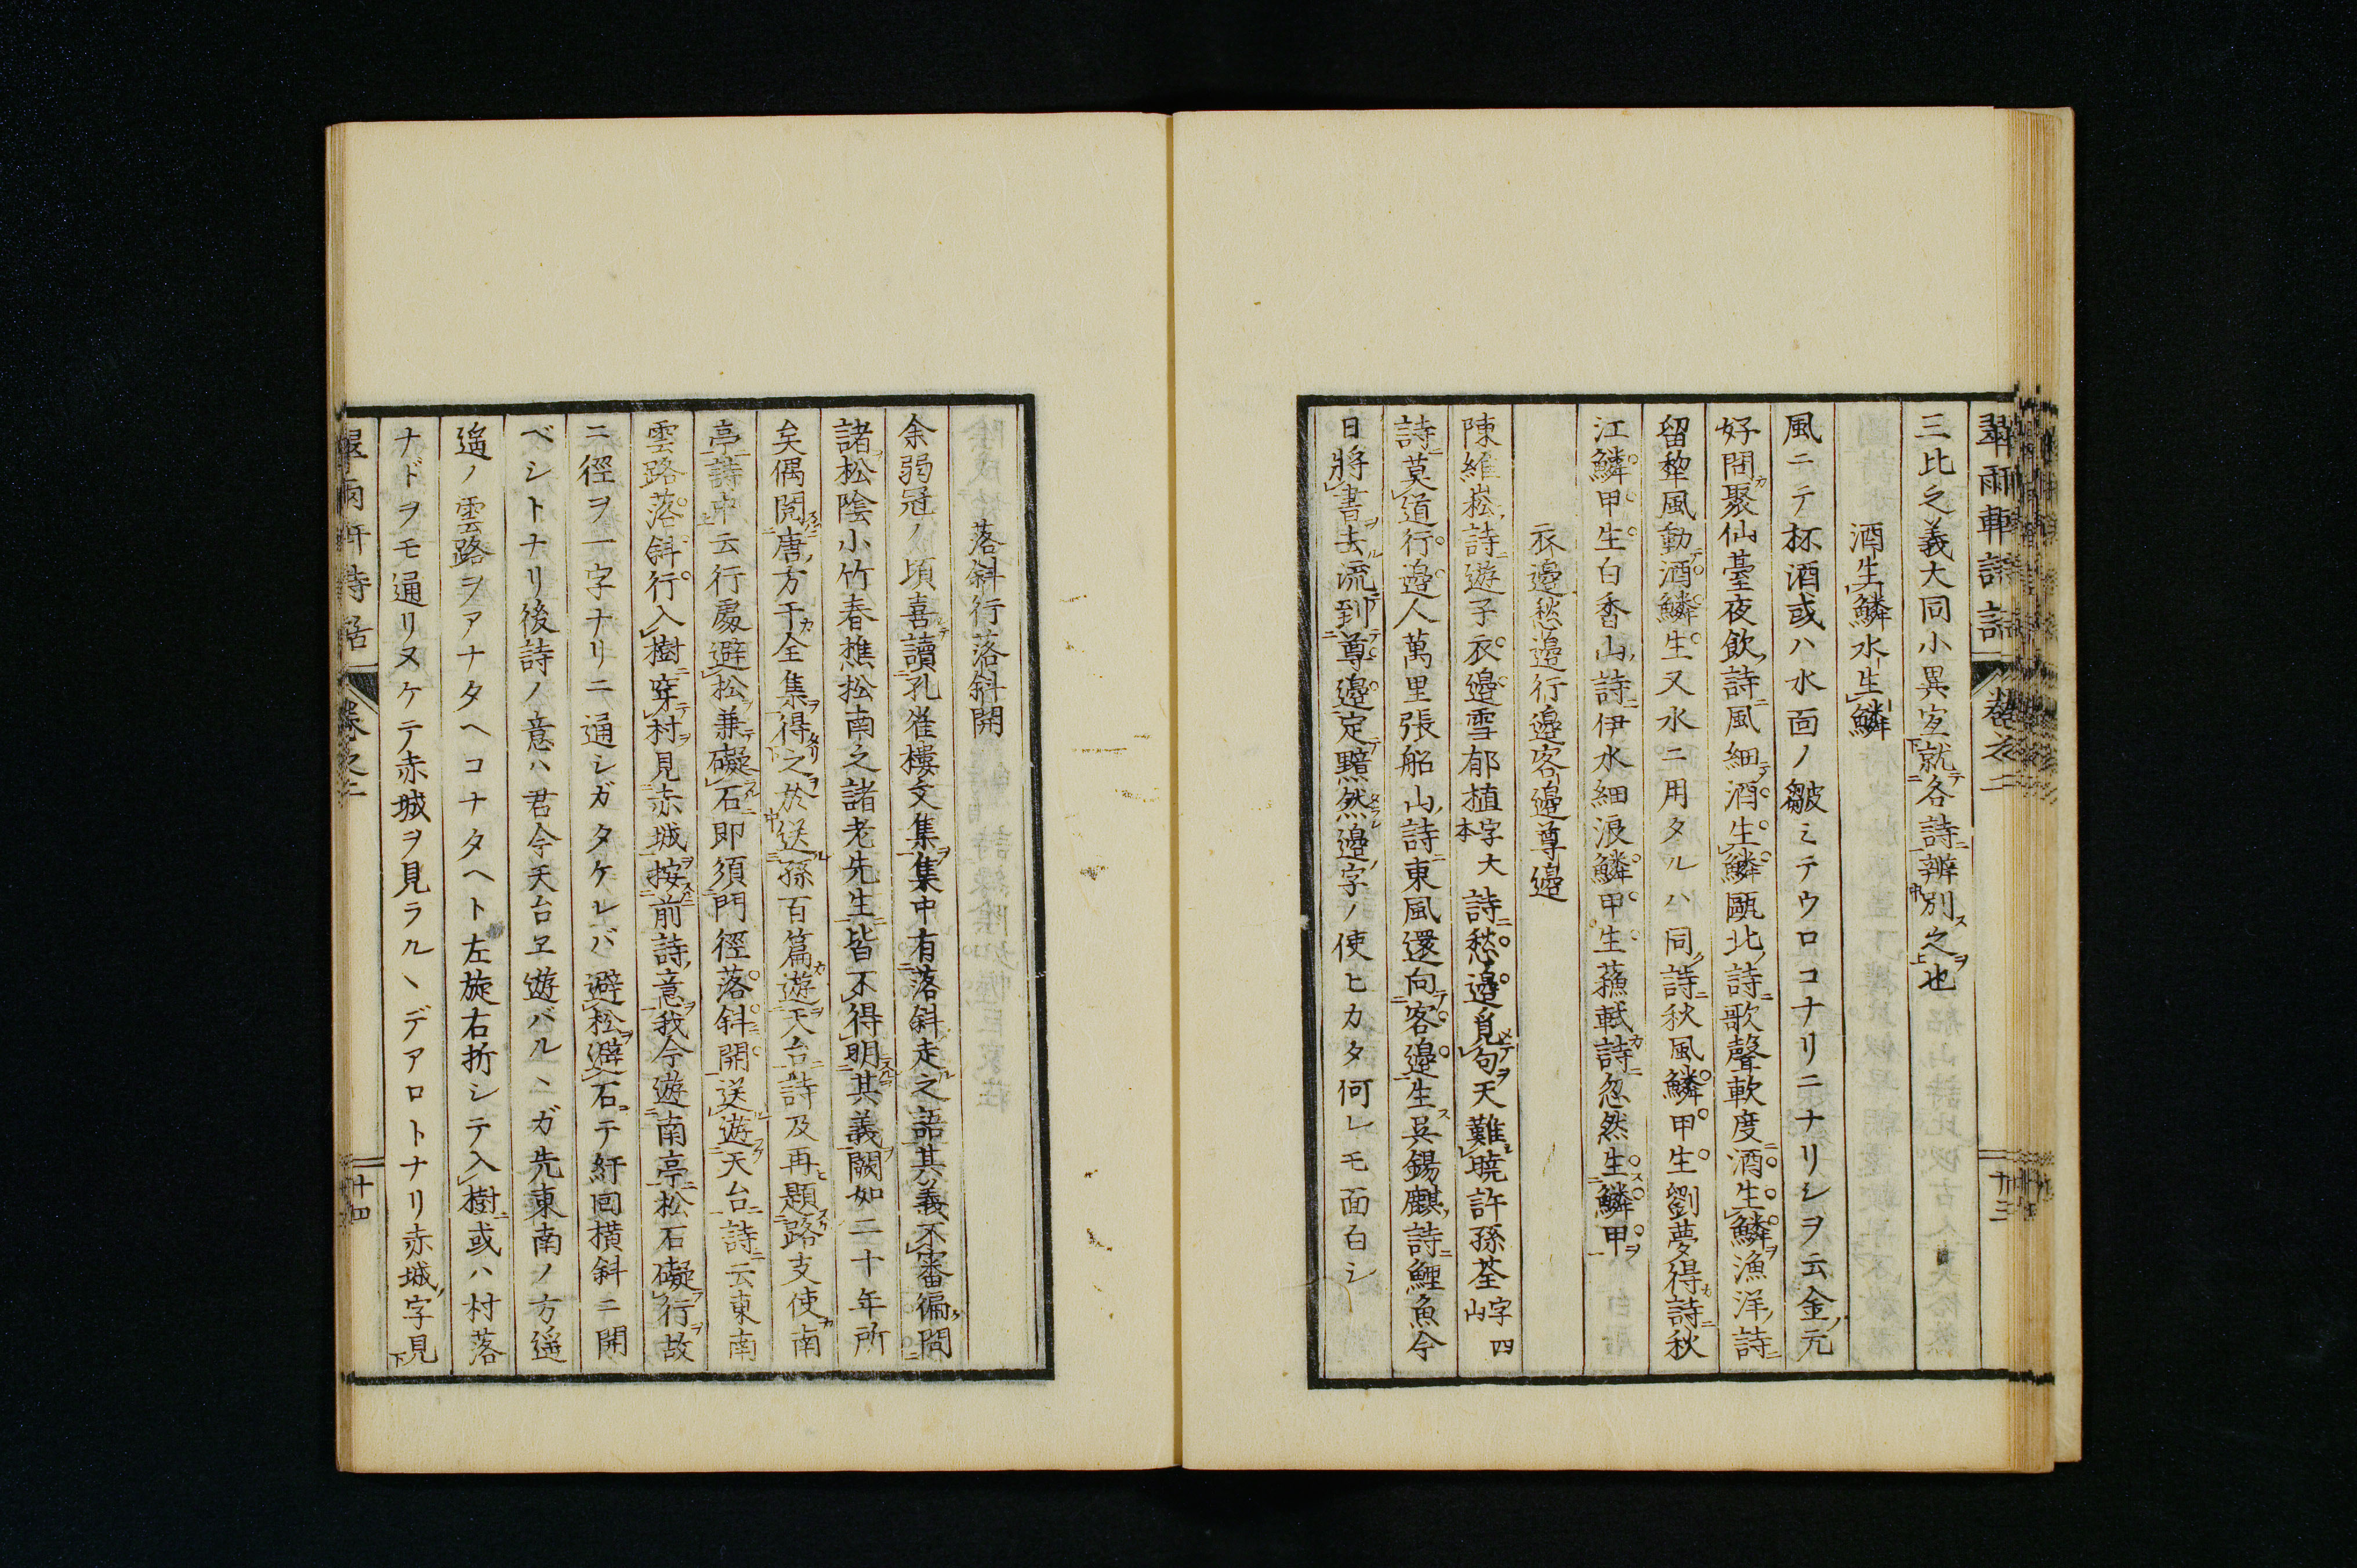 翠雨軒詩話 卷之二 十三
三比之義大同小異宜就各詩辨別之也
酒生鱗水生鱗
風ニテ杯酒或ハ水面ノ皺ミテウロコナリニナリシヲ云金元
好問聚仙臺夜飲詩風細酒生鱗甌北詩歌聲軟度酒生鱗漁洋詩
留犂風動酒鱗生又水ニ用タルハ同詩秋風鱗甲生劉夢得詩秋
江鱗甲生白香山詩伊水細浪鱗甲生蘓軾詩忽然生鱗甲
衣邊愁邊行邊客邊尊邊
陳維崧詩遊子衣邊雪郁植字大本詩愁邊覓句天難曉許孫荃字四山
詩莫道行邊人萬里張船山詩東風還向客邊生吳錫麒詩鯉魚今
日將書去流到尊邊定黯然邊字ノ使ヒカタ何レモ面白シ
落斜行落斜開
余弱冠ノ頃喜讀孔雀樓文集集中有落斜走之語其義不審徧問
諸松陰小竹春樵松南之諸老先生皆不得明其義闕如二十年所
矣偶閱唐方干全集得之於送孫百篇遊天台詩及再題路支使南
亭詩中云行處避松兼礙石即須門徑落斜開送遊天台詩云東南
雲路落斜行入樹穿村見赤城按前詩意我今遊南亭松石礙行故
ニ徑ヲ一字ナリニ通シガタケレバ避松避石テ紆回橫斜ニ開
ベシトナリ後詩ノ意ハ君今天台ヱ遊バルヽガ先東南ノ方遥
遥ノ雲路ヲアナタヘコナタヘト左旋右折シテ入樹或ハ村落
ナドヲモ通リヌケテ赤城ヲ見ラルヽデアロトナリ赤城字見
翠雨軒詩話 卷之二 十四